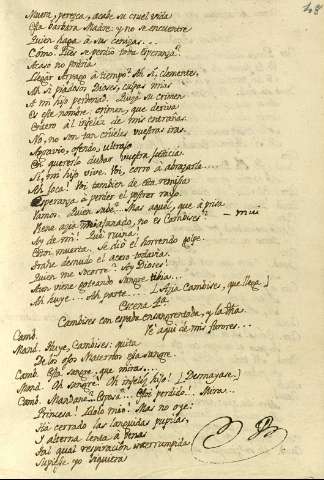 48
Muera, peresca, acabe su cruel vida
Esta barbara Madre: y no se encuentre
Quien haga a sus cenizas...
Cómo? Pues se perdió toda esperanza?
Acaso no podría
Llegar a tiempo? Ah si, clementes,
Ah si piadosos Dioses, culpas mias
A mi hijo perdonad. Quizá su crimen
Es este nombre, crimen, que deriva
el infeliz de mis entrañas.
No, no son tan crueles vuestras iras.
Agravio, ofendo, ultrajo
En quererlo dudar vuestra justicia.
Si, mi hijo vive. Voi, corro á abrazarle...
Ah loca! Voi tambien de esta
Esperanza á perder el postrer rayo.
Vamos. Quien sabe?... Mas aquel, que á prisa
Viene azia mi afanado, no es Cambises? — mui
Ay de mi! Que ruina!
Estoi muerta. Se dió el horrendo golpe.
Trahe desnudo el acero todavia.
Quien me socorre? Ay Dioses!
Aun viene goteando sangre tibia...
Ah huye... Ah parte... [A Cambises, que llega]
Escena 4ª
Cambises con espada ensangrentada, y la dha.
Camb. He aqui de mis furores...
Mand. Huye, Cambises: quita
De los ojos Maternos esa sangre.
Camb. Esta sangre, que miras...
Mand. Oh sangre! Oh infeliz hijo! [Desmayase.]
Camb. Mandane... Esposa... Estoi perdido!.. Mira...
Princesa! Idolo mio! Mas no oye:
Há cerrado las languidas pupilas,
Y alterna lenta á penas
tal qual respiracion interrumpida!
Supiese yo siquiera